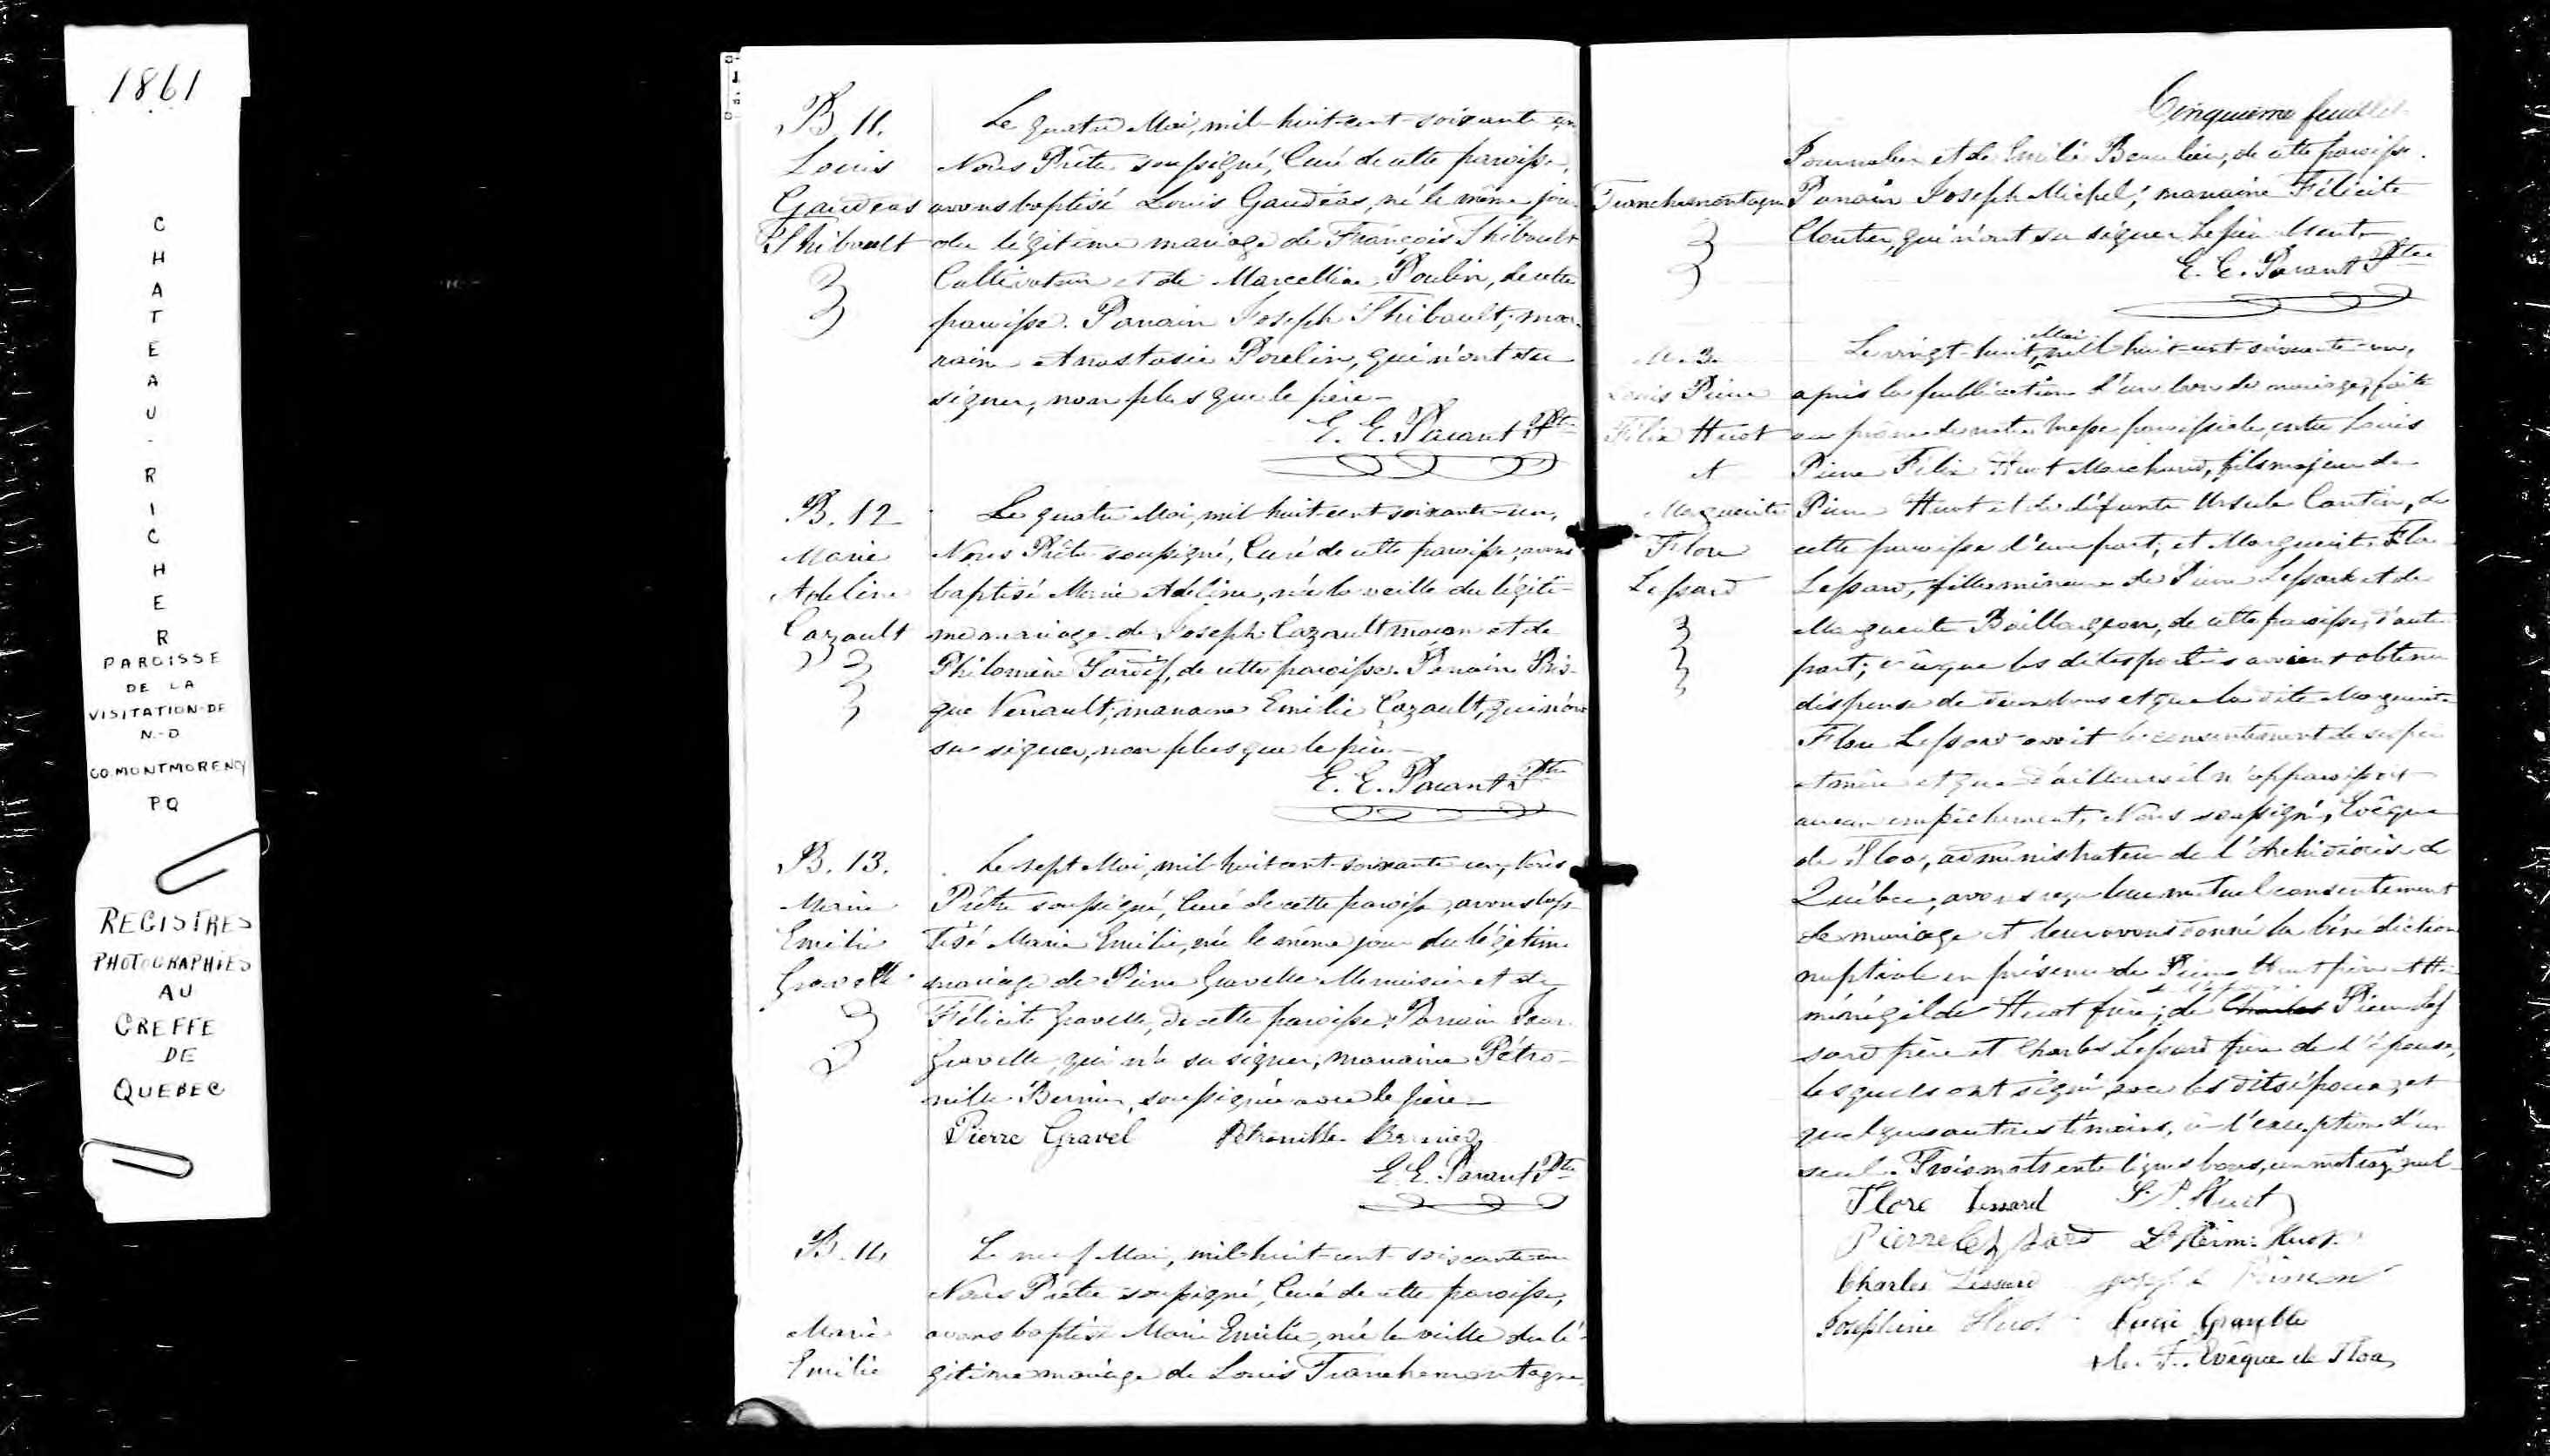 1861
CHATEAU-RICHER
PAROISSE
DE LA
VISITATION-DE
N.-D
CO. MONTMORENCY
P Q
REGISTRES
PHOTOGRAPHIES
AU
GREFFE
DE
QUEBEC
B. 11.
Louis
Gaudéas
Thibault
Le quatre Mai, mil-huit-cent-soixante-un
Nous Prêtre soussigné, Curé de cette paroisse,
avons baptisé Louis Gaudéas, né le même jour
du légitime mariage de François Thibault
Cultivateur et de Marcelline Poulin, de cette
paroisse. Parrain Joseph Thibault; mar-
raine Anastasie Poulin, qui n'ont su
signer, non plus que le père-
E. E. Parant Ptre
B. 12
Marie
Adeline
Cazault
Le quatre Mai, mil huit-cent-soixante-un,
Nous Prêtre soussigné, Curé de cette paroisse, avons
baptisé Marie Adeline, née la veille du légiti-
me mariage de Joseph Cazault maçon et de
Philomène Tardif, de cette paroisse. Parrain Pris-
que Verrault; marraine Emilie Cazault, qui n'ont
su signer, non plus que le père-
E. E. Parant Ptre
B. 13.
Marie
Emilie
Gravelle
Le sept Mai, mil-huit-cent-soixante-un, Nous
Prêtre soussigné, Curé de cette paroisse, avons bap-
tisé Marie Emilie, née le même jour du légitime
mariage de Pierre Gravelle Menuisier et de
Félicité Gravelle, de cette paroisse. Parrain
Gravelle, qui n'a su signer; marraine Pétro-
nille Bernier, soussignée avec le père-
Pierre Gravel Pétronille Bernier
E. E. Parant Ptre
B. 14
Marie
Emilie
Le neuf Mai, mil-huit-cent-soixante-un
Nous Prêtre soussigné, Curé de cette paroisse,
avons baptisé Marie Emilie, née la veille du lé-
gitime mariage de Louis Tranchemontagne
Cinquième feuillet
Tranchemontagne
Journalier et de Emilie Beaulieu, de cette paroisse.
Parrain Joseph Michel; marraine Félicité
Cloutier, qui n'ont su signer. Le père absent-
E. E. Parant Ptre
M. 3
Louis Pierre
Félix Huot
et
Marguerite
Flore
Lessard
Le vingt-huit Mai, mil huit-cent-soixante-un,
après la publication d'un ban de mariage, faite
au prône de notre Messe paroissiale, entre Louis
Pierre Félix Huot Marchand, fils majeur de
Pierre Huot et de défunte Ursule Cantin, de
cette paroisse d'une part; et Marguerite Flore
Lessard, fille mineure de Pierre Lessard et de
Marguerite Baillargeon, de cette paroisse, d'autre
part; vu que les dites parties avaient obtenu
dispense de deux bans et que la dite Marguerite
Flore Lessard avait le consentement de ses père
et mère et que d'ailleurs il n'apparaissait
aucun empêchement, Nous soussigné, Evêque
de Tloa, administrateur de l'Archidiocèse de
Québec, avons reçu leur mutuel consentement
de mariage et leur avons donné la bénédiction
nuptiale en présence de Pierre Huot père et Her-
ménégilde Huot frère; de Charles Pierre Les
sard père et Charles Lessard frère de l'épouse,
lesquels ont signé, avec les dits époux, et
quelques autres témoins, à l'exception d'un
seul. Trois mots entre lignes bons, un mot rayé nul-
Flore Lessard L. P. Huot
Pierre Lessard Ls Herm. Huot
Charles Lessard
Joséphine Huot
+ C. F. Evêque de Tloa,